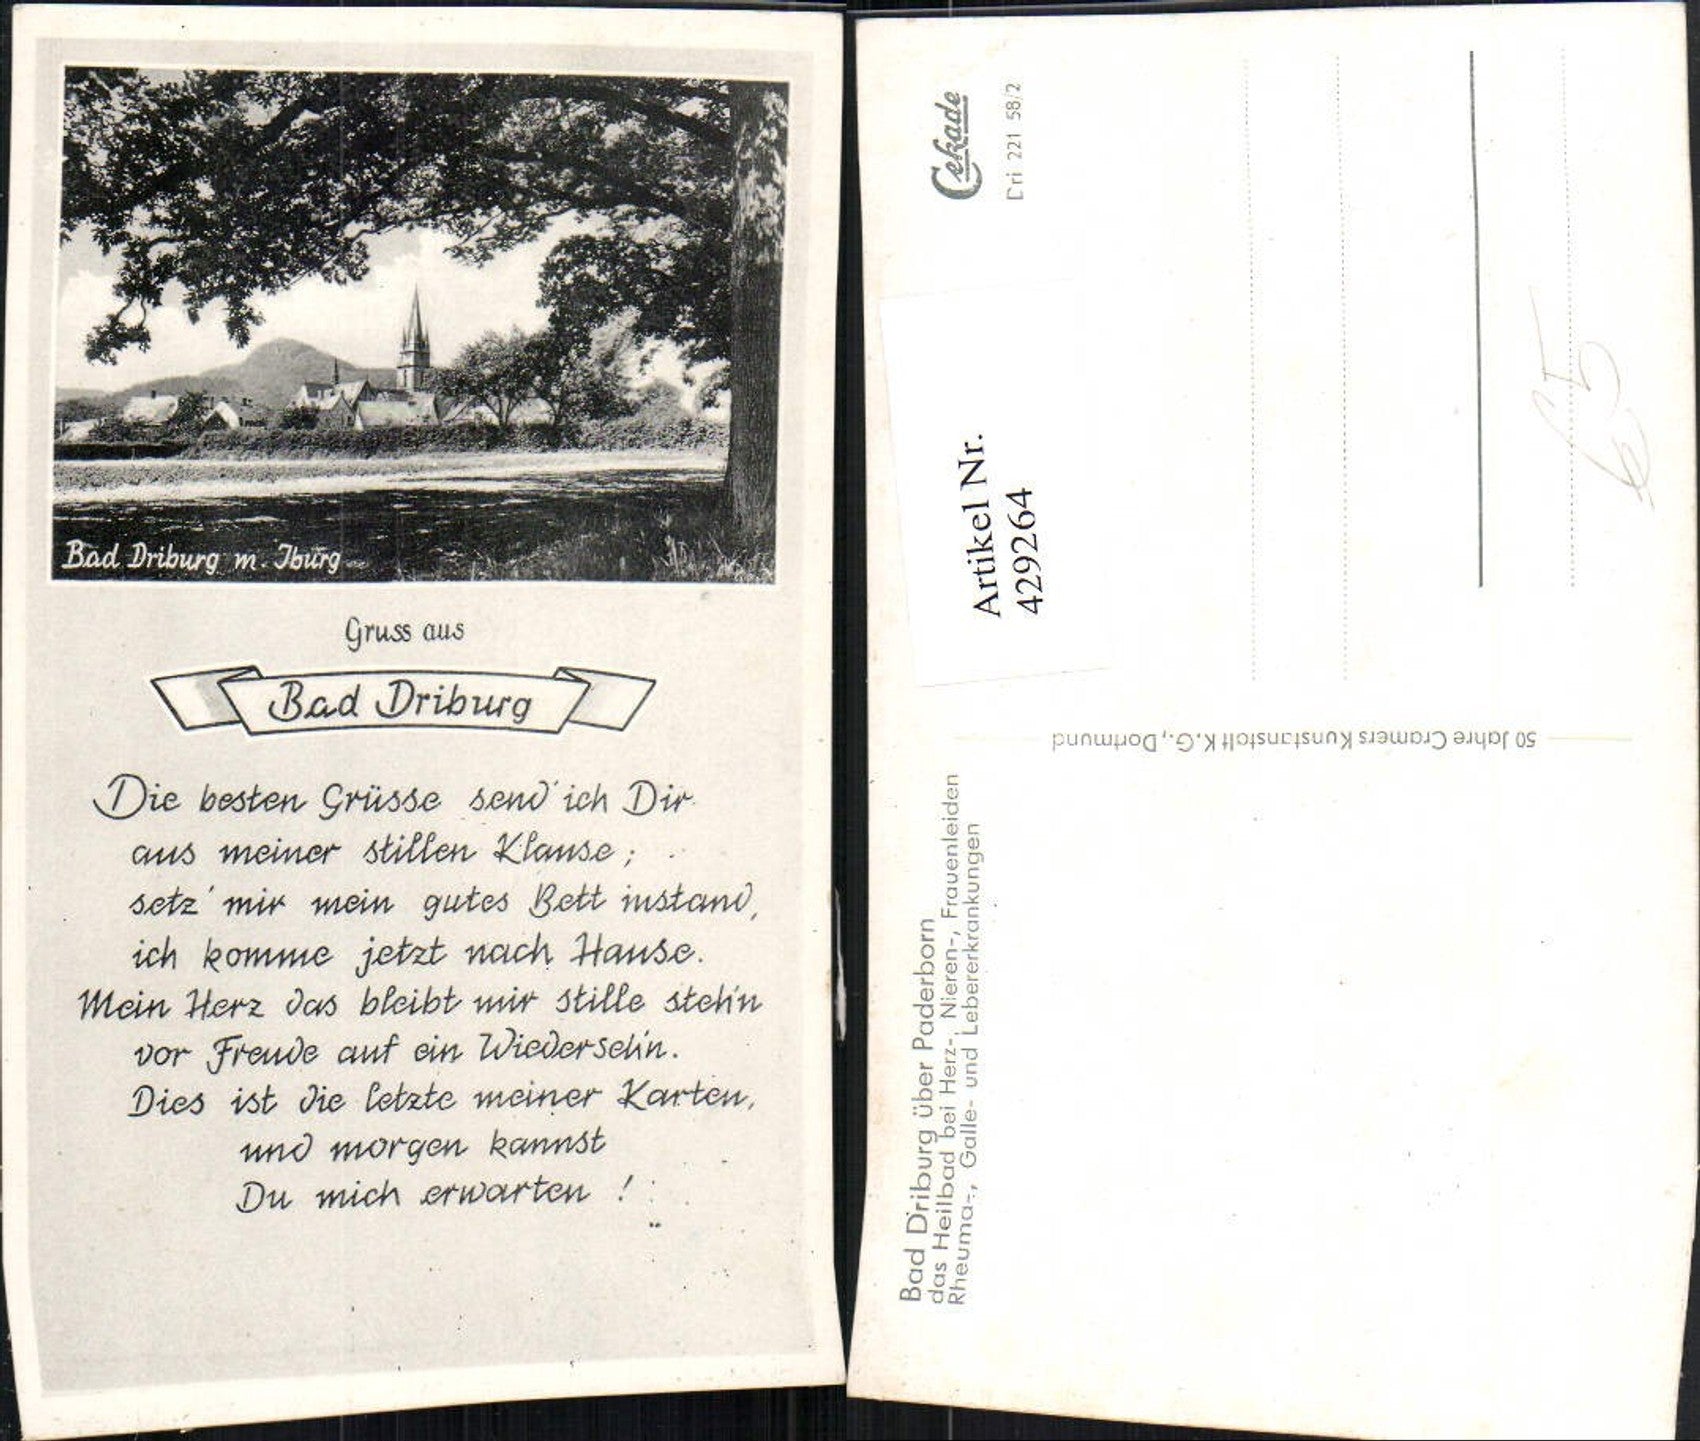 Bad Driburg m. Iburg
Gruss aus
Bad Driburg
Die besten Grüsse send' ich Dir
aus meiner stillen Klause;
setz' mir mein gutes Bett instand,
ich komme jetzt nach Hause.
Mein Herz das bleibt mir stille steh'n
vor Freude auf ein Wiederseh'n.
Dies ist die letzte meiner Karten,
und morgen kannst
Du mich erwarten !
Cekade
Dri 221 58/2
Artikel Nr.
429264
65
50 Jahre Cramers Kunstanstalt K.G., Dortmund
Bad Driburg über Paderborn
das Heilbad bei Herz-, Nieren-, Frauenleiden
Rheuma-, Galle- und Lebererkrankungen